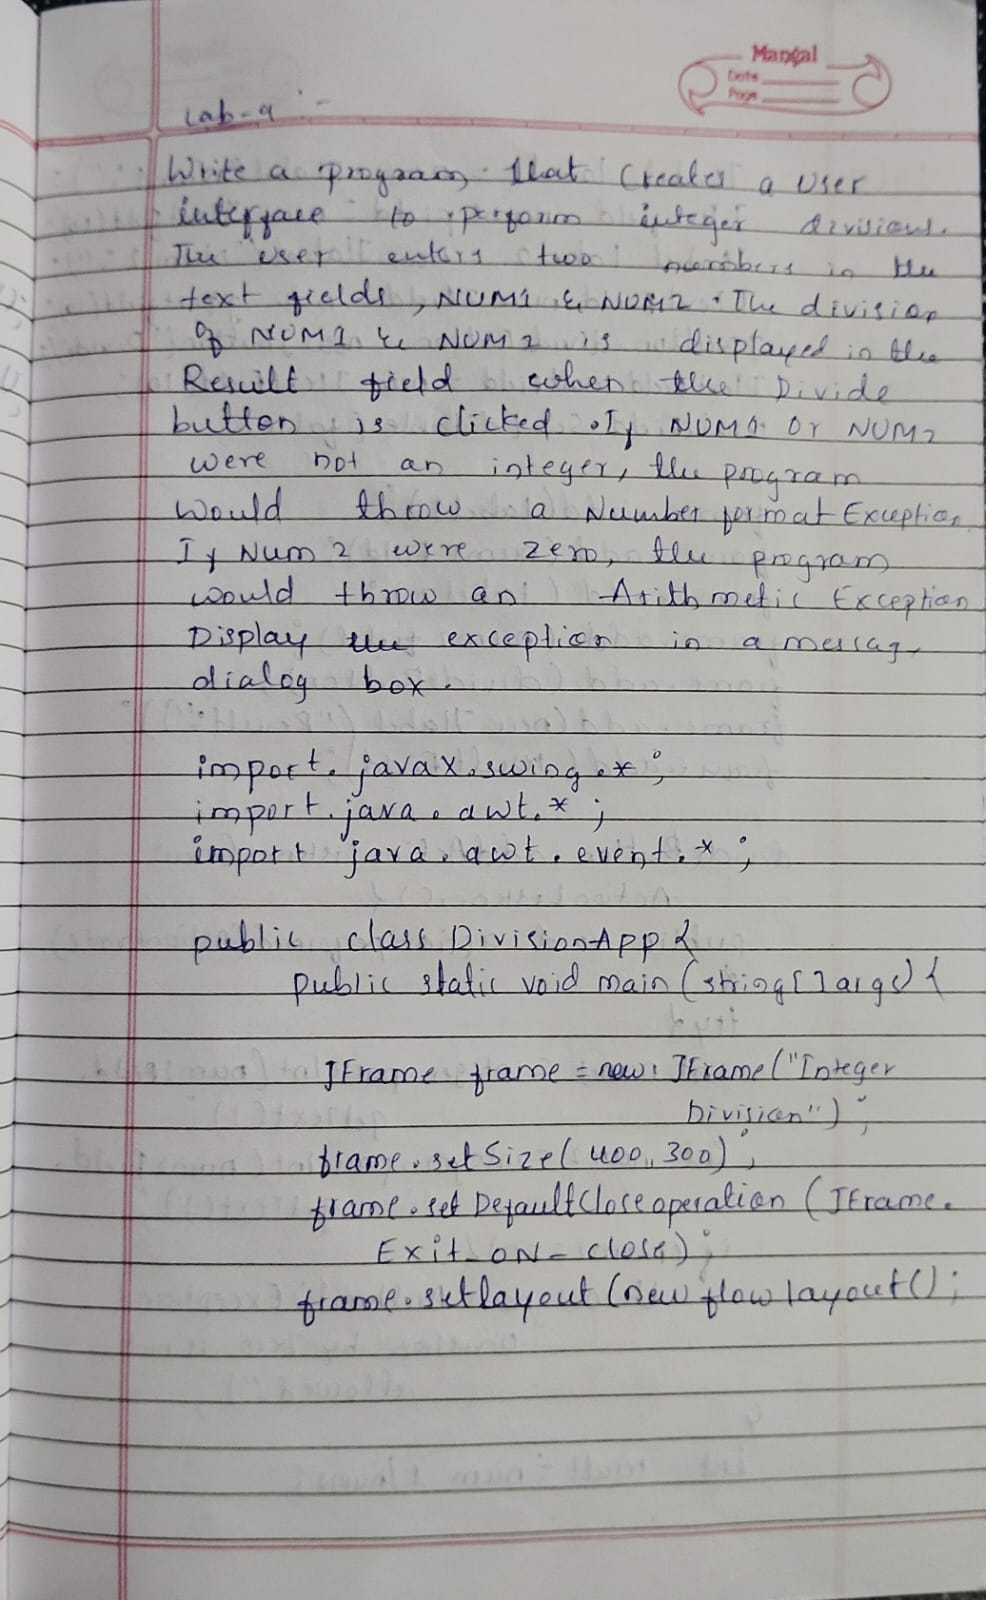 Mangal
Date
Page
Lab-9 :-
Write a program that Creates a user
interface to perform integer divisions.
The user enters two numbers in the
text fields, NUM1 & NUM2. The division
of NUM1 & NUM2 is displayed in the
Result field when the Divide
button is clicked. If NUM1 or NUM2
were not an integer, the program
would throw a Number format Exception
If Num2 were zero, the program
would throw an Arithmetic Exception
Display the exception in a messag
dialog box.
import. javax.swing.*;
import. java.awt.*;
import java.awt.event.*;
public class DivisionApp {
public static void main (string[]args) {
JFrame frame = new JFrame("Integer
Division");
frame.setSize(400, 300);
frame.set DefaultClose operation (JFrame.
Exit_ON_close);
frame.setlayout (new flow layout();